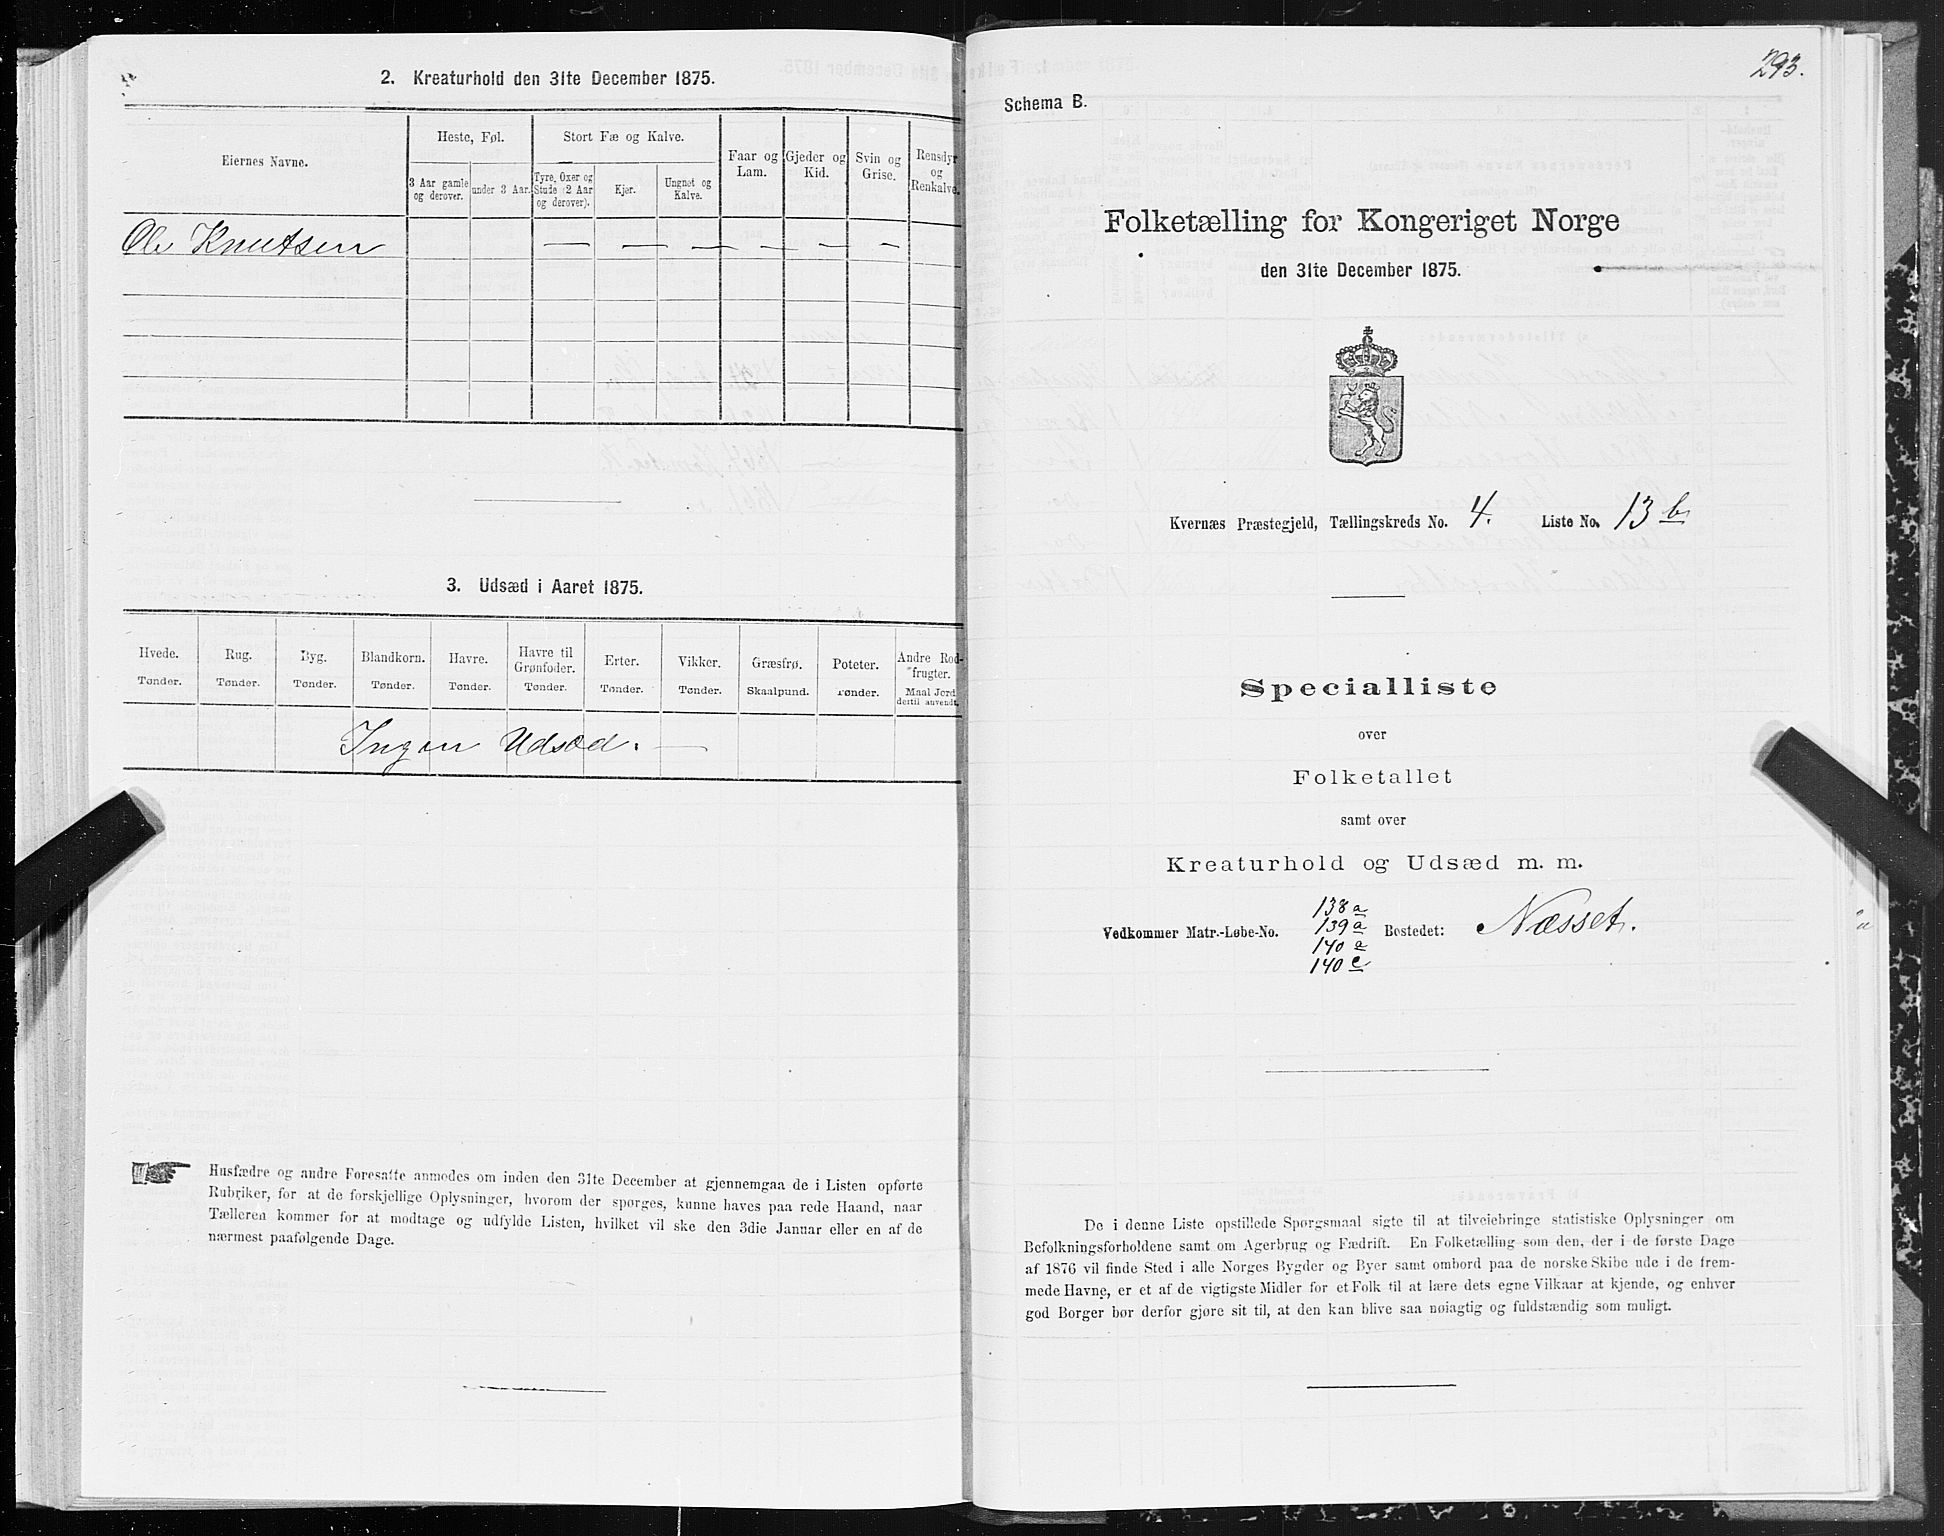 2. Kreaturhold den 31te December 1875.
Eiernes Navne.
Heste, Føl.
Stort Fæ og Kalve.
Faar og Lam.
Gjeder og Kid.
Svin og Grise.
Rensdyr og Renkalve.
3 Aar gamle og derover.
under 3 Aar.
Tyre, Oxer og Stude (2 Aar og derover).
Kjer.
Ungnøt og Kalve.
Ole Knutsen — — — — — —
3. Udsæd i Aaret 1875.
Hvede. Rug. Byg. Blandkorn. Havre. Havre til Grønfoder. Erter. Vikker. Græsfrø. Poteter. Andre Rodfrugter.
Tønder. Tønder. Tønder. Tønder. Tønder. Tønder. Tønder. Tønder. Skaalpund. Tønder. Maal Jord dertil anvendt.
Ingen Udsæd. —
Husfædre og andre Foresatte anmodes om inden den 31te December at gjennemgaa de i Listen opførte
Rubriker, for at de forskjellige Oplysninger, hvorom der spørges, kunne haves paa rede Haand, naar
Tælleren kommer for at modtage og udfylde Listen, hvilket vil ske den 3die Januar eller en af de
nærmest paafølgende Dage.
293.
Schema B.
Folketælling for Kongeriget Norge
den 31te December 1875.
Kvernæs Præstegjeld, Tællingskreds No. 4. Liste No. 13 b
Specialliste
over
Folketallet
samt over
Kreaturhold og Udsæd m. m.
138 a
139 a
Vedkommer Matr.-Løbe-No. Bostedet: Næsset.
140 a
140 c
De i denne Liste opstillede Spørgsmaal sigte til at tilveiebringe statistiske Oplysninger om
Befolkningsforholdene samt om Agerbrug og Fædrift. En Folketælling som den, der i de første Dage
af 1876 vil finde Sted i alle Norges Bygder og Byer samt ombord paa de norske Skibe ude i de frem-
mede Havne, er et af de vigtigste Midler for et Folk til at lære dets egne Vilkaar at kjende, og enhver
god Borger bør derfor gjøre sit til, at den kan blive saa nøiagtig og fuldstændig som muligt.